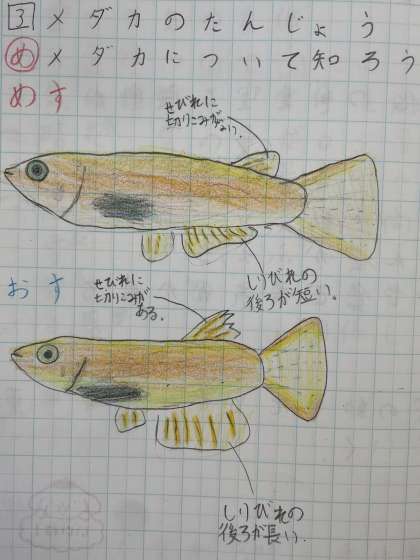 3 メダカのたんじょう
め メダカについて知ろう
めす
せびれに
切りこみが
ない。
しりびれの
後ろが短い。
おす
せびれに
切りこみが
ある。
しりびれの
後ろが長い。